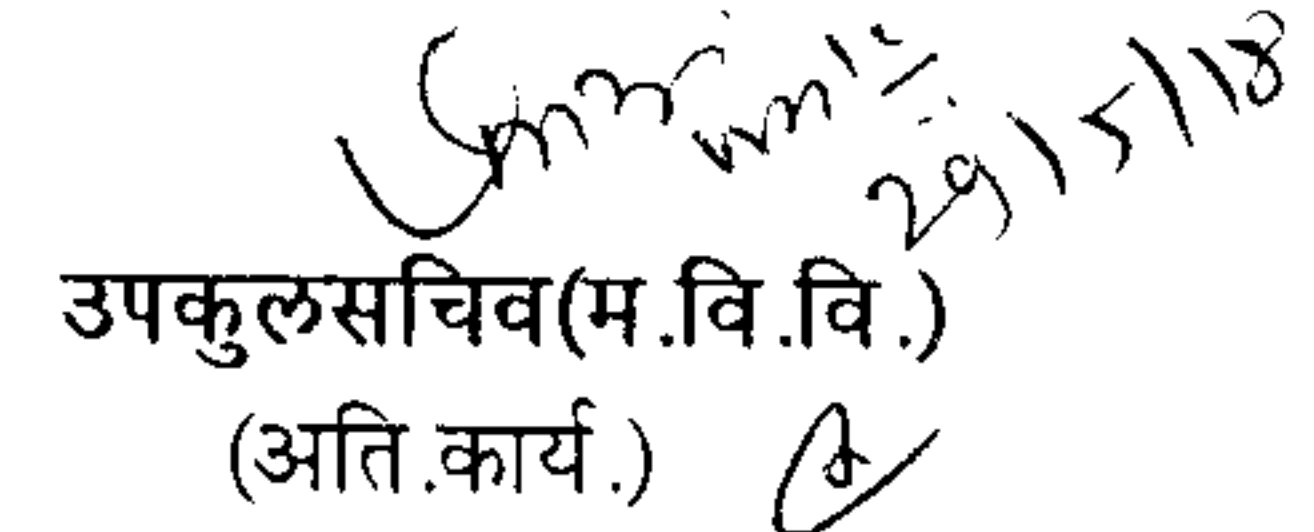 29/5/18
उपकुलसचिव(म.वि.वि.)
(अति.कार्य.)